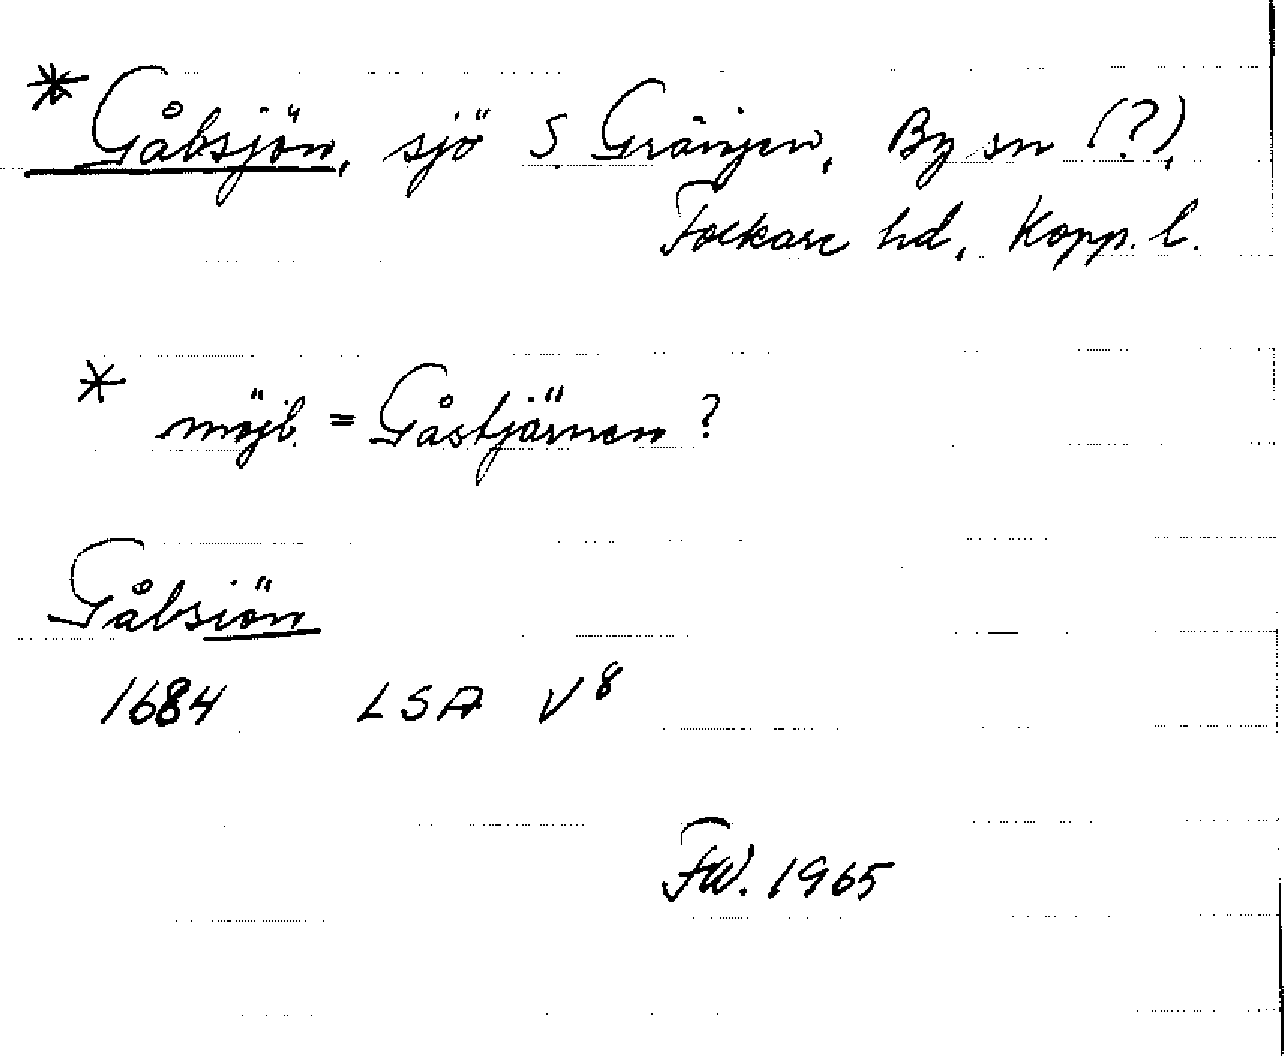 * Gåbsjön, sjö S Grängen, By sn (?),
Folkare hd, Kopp. l.
* möjl. = Gåstjärnen ?
Gåbsiön
1684 LSA V⁸
FW. 1965